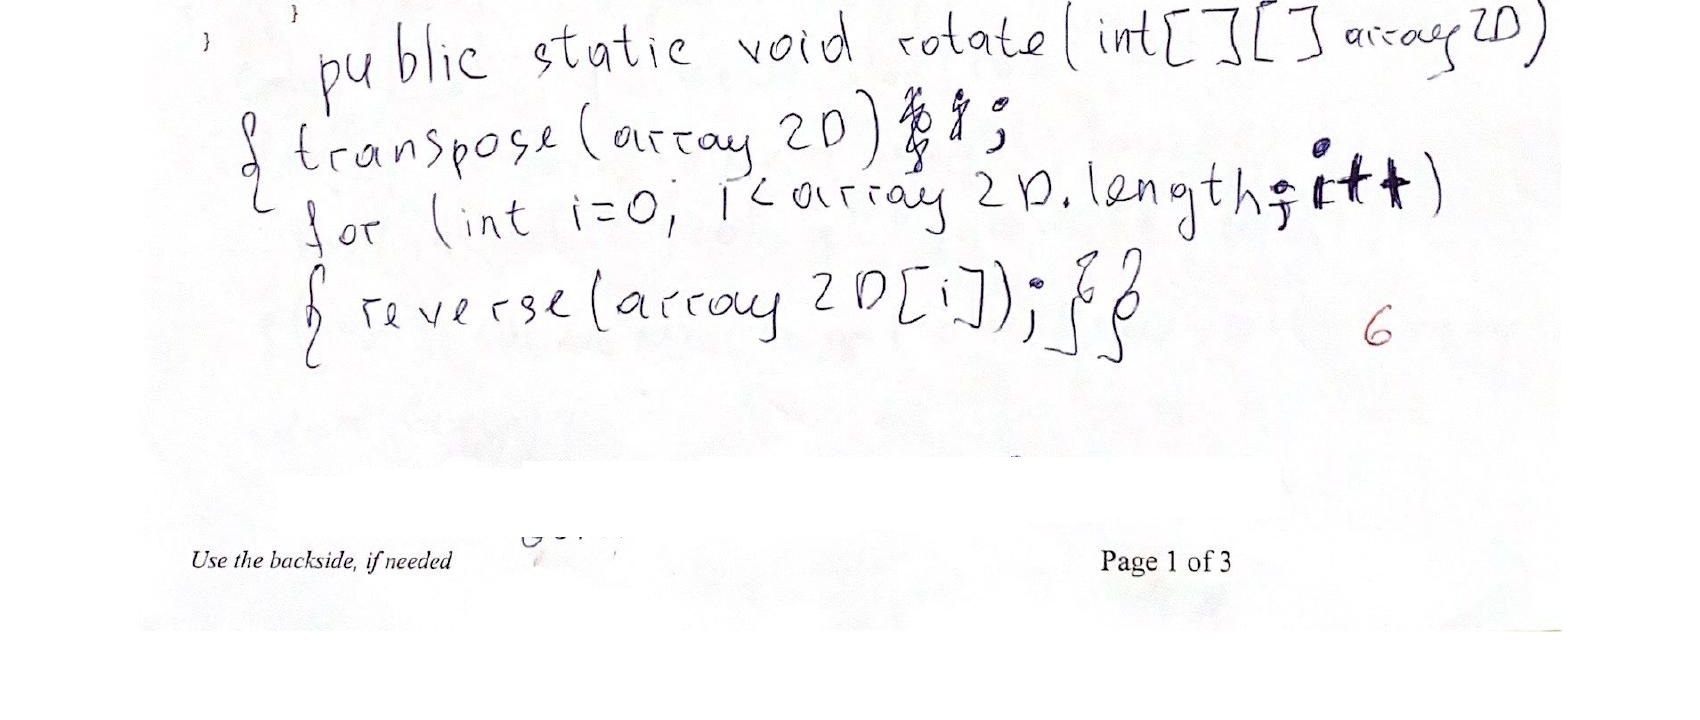 }
} public static void rotate(int[][] array2D)
{ transpose(array 2D) ;
for (int i=0; i<array 2D.length; i++)
{ reverse(array 2D[i]);}}
6
Use the backside, if needed Page 1 of 3